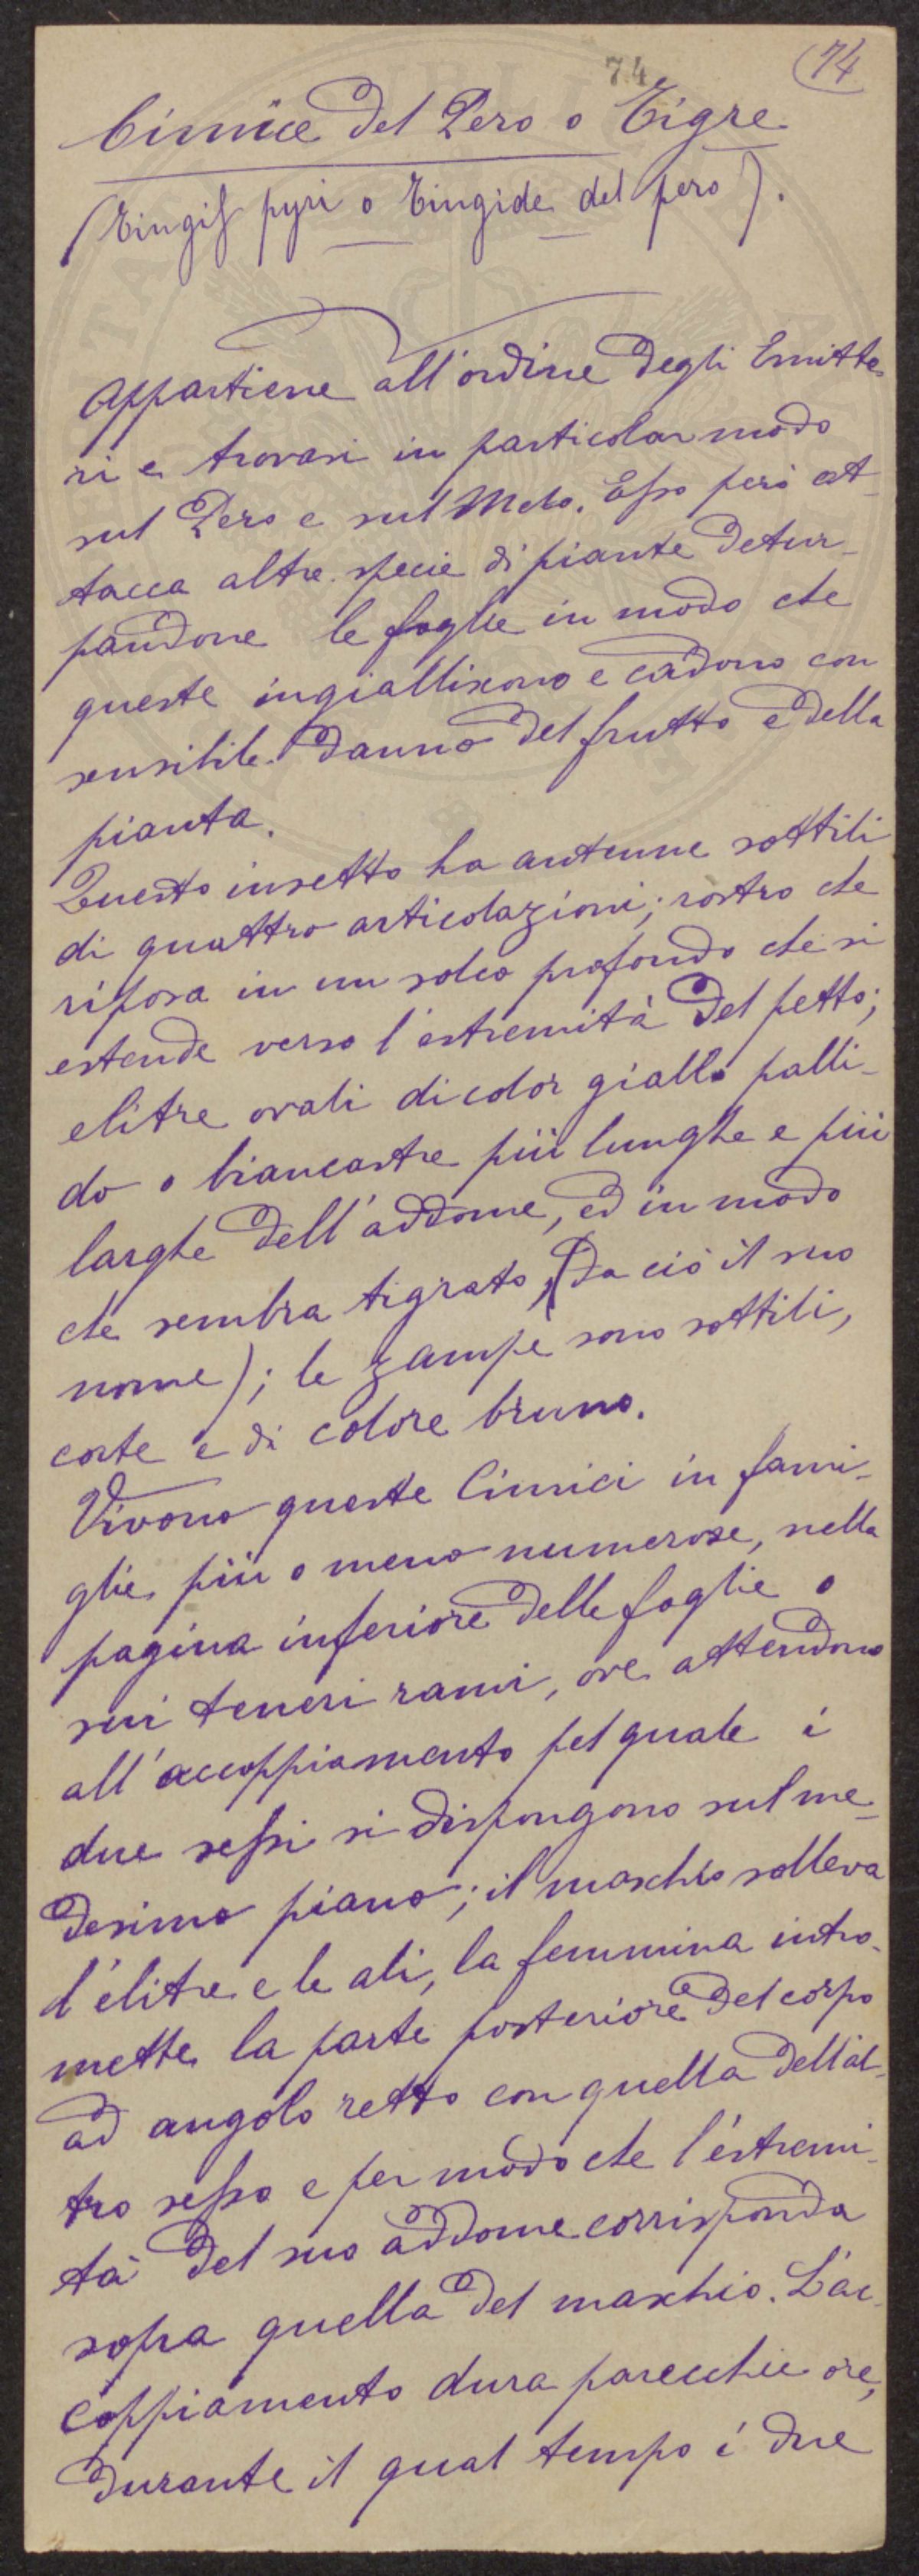 74
74
Cimice del Pero o Tigre
(Tingis pyri o Tingide del pero).
Appartiene all'ordine degli Emitte-
ri e trovasi in particolar modo
sul Pero e sul Melo. Esso però at-
tacca altre specie di piante detur-
pandone le foglie in modo che
queste ingialliscono e cadono con
sensibile danno del frutto e della
pianta.
Questo insetto ha antenne sottili
di quattro articolazioni; rostro che
riposa in un solco profondo che si
estende verso l'estremità del petto;
elitre ovali di color giallo palli-
do o biancastre più lunghe e più
larghe dell'addome, ed in modo
che sembra tigrato (da ciò il suo
nome); le zampe sono sottili,
corte e di colore bruno.
Vivono queste Cimici in fami-
glie più o meno numerose, nella
pagina inferiore delle foglie o
sui teneri rami, ove attendono
all'accoppiamento pel quale i
due sessi si dispongono sul me-
desimo piano; il maschio solleva
l'elitre e le ali, la femmina intro-
mette la parte posteriore del corpo
ad angolo retto con quella dell'al-
tro sesso e per modo che l'estremi-
tà del suo addome corrisponda
sopra quella del maschio. L'ac-
coppiamento dura parecchie ore,
durante il qual tempo i due